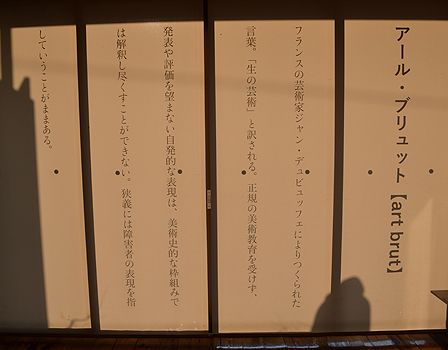 アール・ブリュット【art brut】
フランスの芸術家ジャン・デュビュッフェによりつくられた
言葉。「生の芸術」と訳される。正規の美術教育を受けず、
発表や評価を望まない自発的な表現は、美術史的な枠組みで
は解釈し尽くすことができない。狭義には障害者の表現を指
していうことがままある。